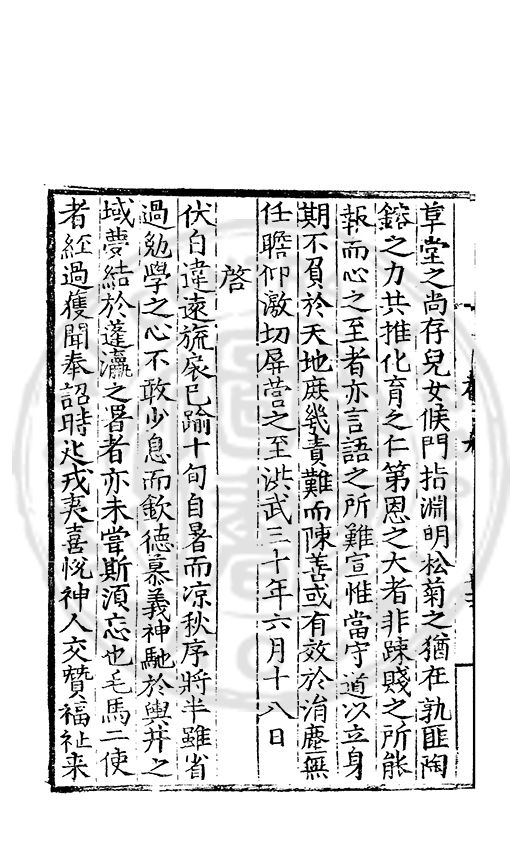 草堂之尚存兒女候門指淵明松菊之猶在孰匪陶
鎔之力共推化育之仁第恩之大者非踈賤之所能
報而心之至者亦言語之所難宣惟當守道以立身
期不負於天地庻幾責難而陳善或有效於涓塵無
任瞻仰激切屏營之至洪武三十年六月十八日
啓
伏自違遠旒扆已踰十旬自暑而凉秋序將半雖省
過勉學之心不敢少息而欽德慕義神馳於輿井之
域夢結於蓬瀛之署者亦未甞斯湏忘也毛馬二使
者經過獲聞奉詔時廵戎夷喜恱神人交贊福祉来